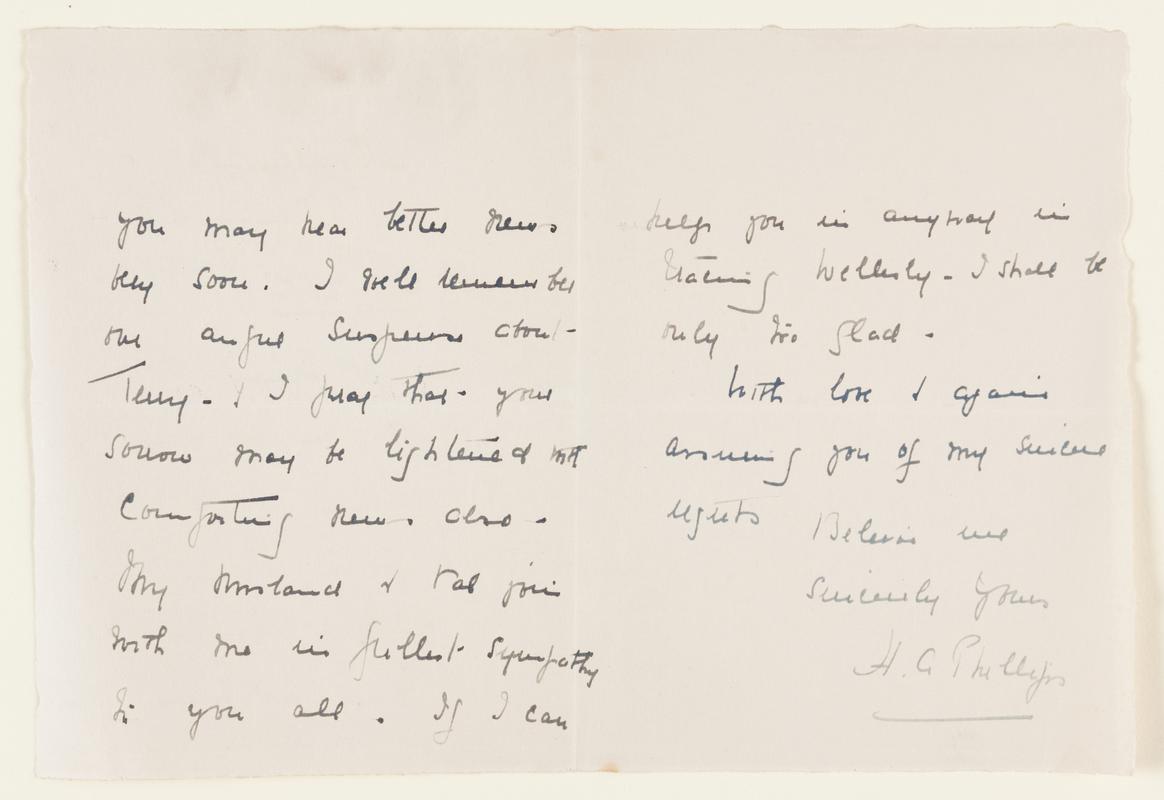 you may hear better news
very soon. I well remember
our
suspense about
Terry - & I pray that your
sorrow may be lightened with
comforting news also -
My husband & Val join
with me in fullest sympathy
to you all. If I can
help you in anyway in
Wellesly - I shall be
only too glad -
With love & again
assuring you of my sincere
regrets
Believe me
Sincerely Yours
H. G Phillips